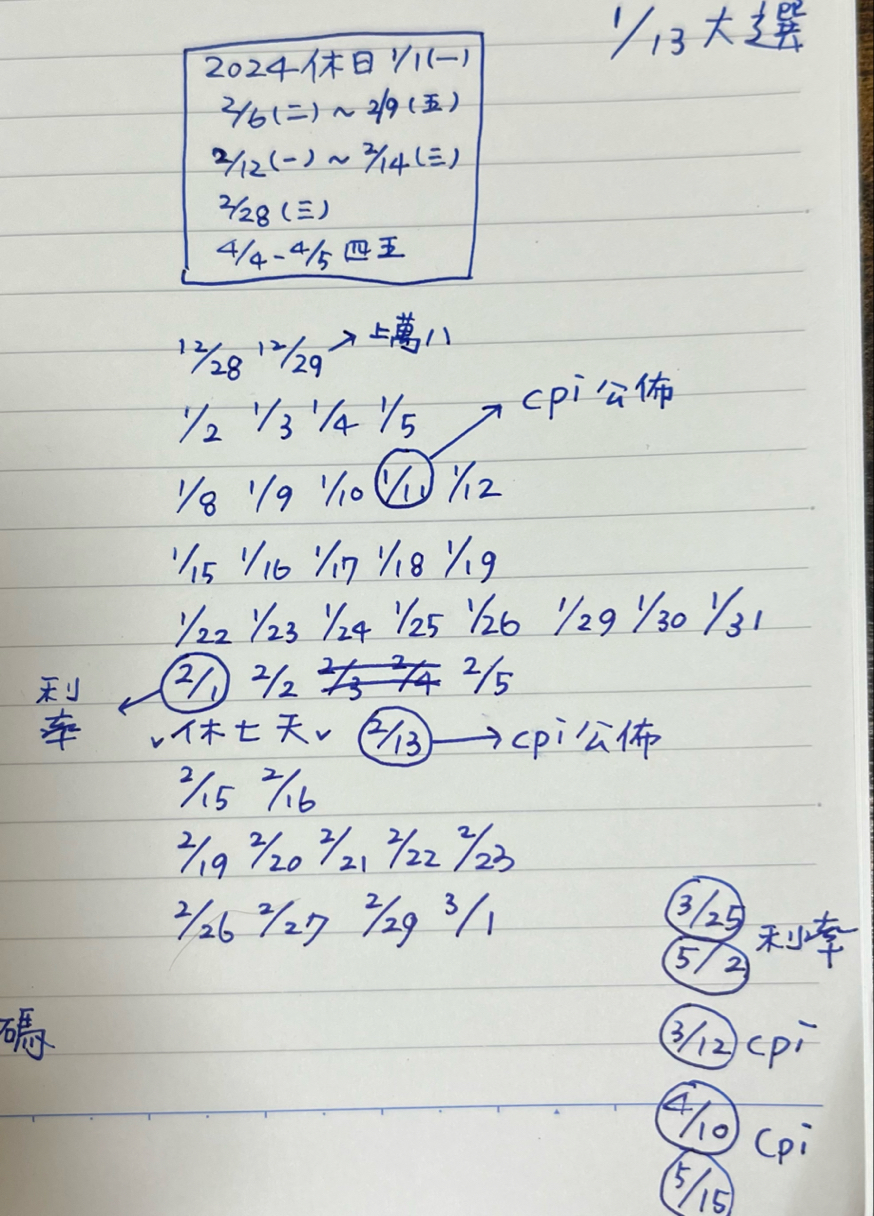 1/13 大選
2024休日 1/1(一)
2/6(二)~2/9(五)
2/12(一)~2/14(三)
2/28(三)
4/4-4/5 四五
12/28 12/29→上萬八
1/2 1/3 1/4 1/5 cpi公佈
1/8 1/9 1/10 1/11 1/12
1/15 1/16 1/17 1/18 1/19
1/22 1/23 1/24 1/25 1/26 1/29 1/30 1/31
利率 2/1 2/2 2/3 2/4 2/5
✓休七天✓ 2/13→cpi公佈
2/15 2/16
2/19 2/20 2/21 2/22 2/23
2/26 2/27 2/29 3/1
3/25
5/2 利率
碼
3/12 cpi
4/10 cpi
5/15